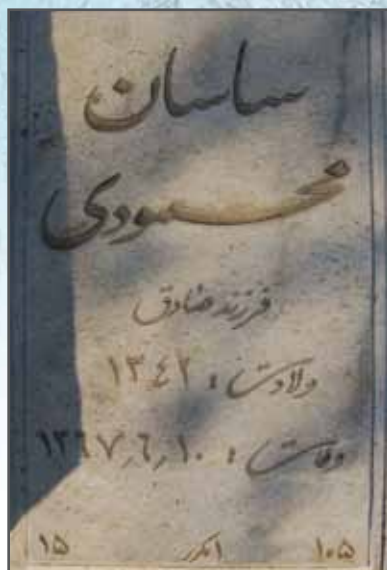 ساسان
محمودی
فرزند صادق
ولادت : ۱۳۴۲
وفات : ۱۳۶۷٫۶٫۱۰
۱۰۵ ۱۵